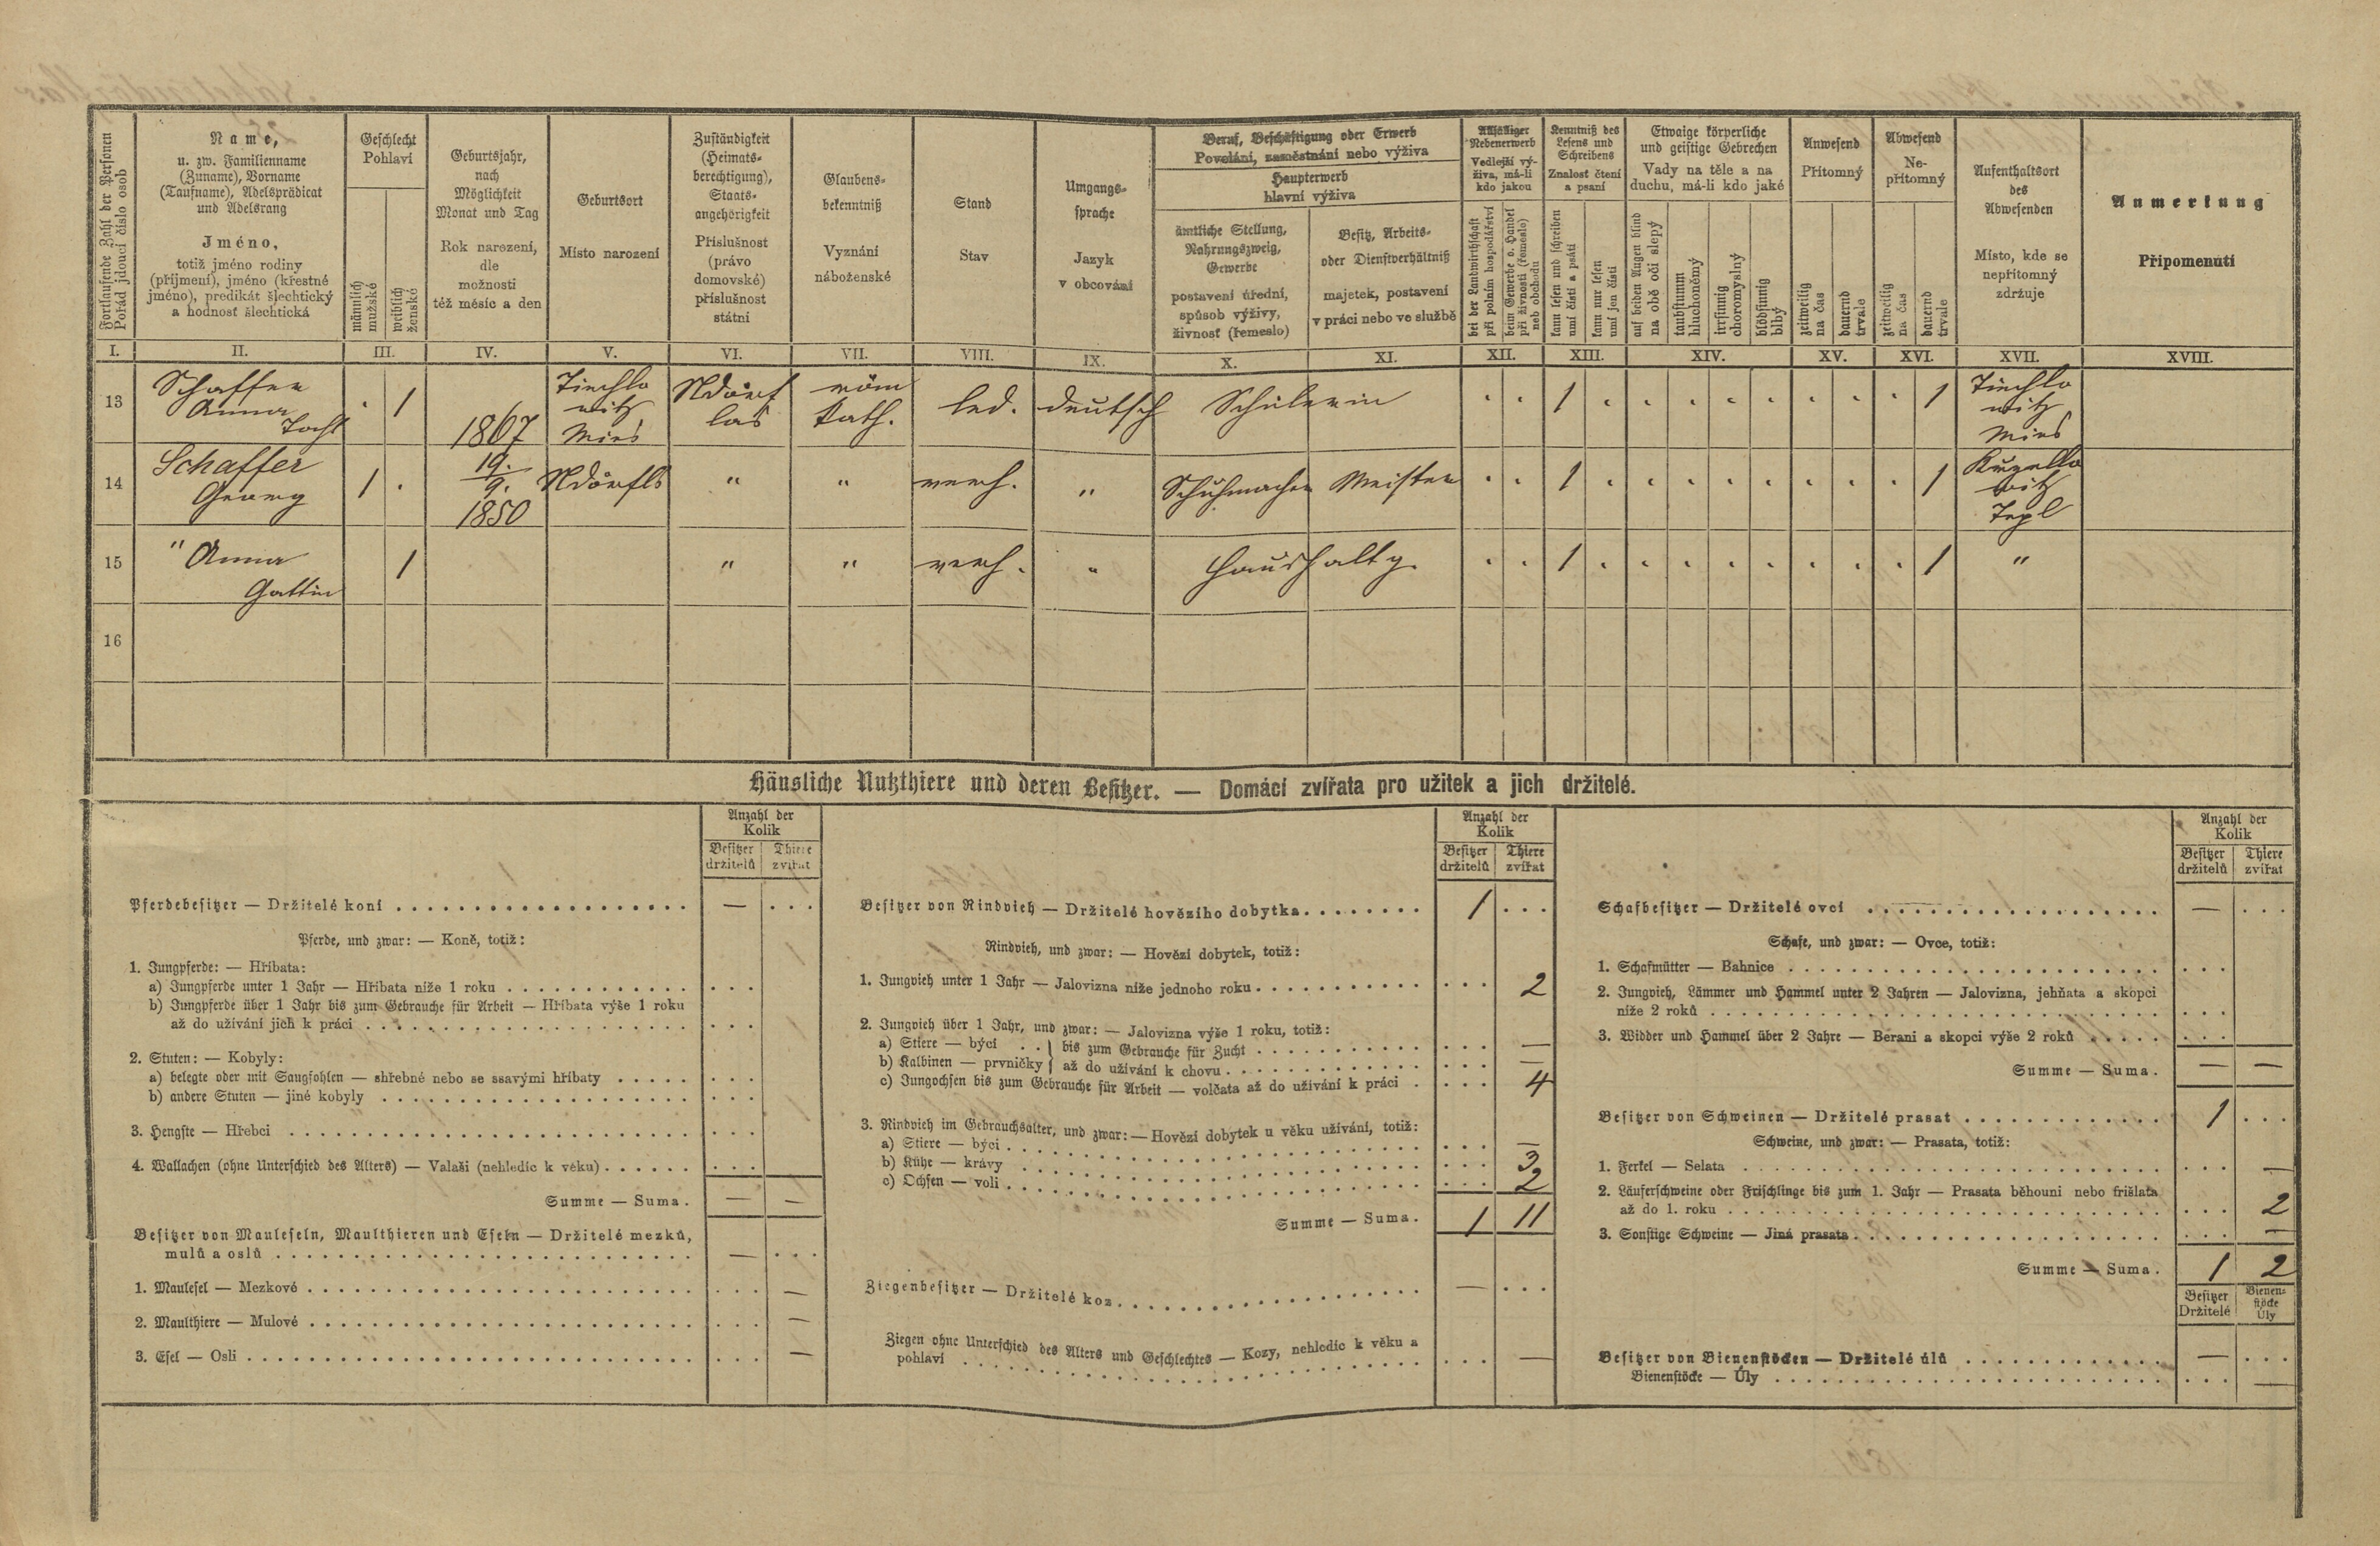 Fortlaufende Zahl der Personen
Pořád jdoucí číslo osob
Name,
u. zw. Familienname
(Zuname), Vorname
(Taufname), Adelsprädicat
und Adelsrang
Jméno,
totiž jméno rodiny
(příjmení), jméno (křestné
jméno), predikát šlechtický
a hodnosť šlechtická
Geschlecht
Pohlaví
männlich
mužské
weiblich
ženské
Geburtsjahr,
nach
Möglichkeit
Monat und Tag
Rok narození,
dle
možnosti
též měsíc a den
Geburtsort
Místo narození
Zuständigkeit
(Heimats-
berechtigung),
Staats-
angehörigkeit
Příslušnost
(právo
domovské)
příslušnost
státní
Glaubens-
bekenntniß
Vyznání
náboženské
Stand
Stav
Umgangs-
sprache
Jazyk
v obcování
Beruf, Beschäftigung oder Erwerb
Povolání, zaměstnání nebo výživa
Haupterwerb
hlavní výživa
ämtliche Stellung,
Nahrungszweig,
Gewerbe
postavení úřední,
spůsob výživy,
živnosť (řemeslo)
Besitz, Arbeits-
oder Dienstverhältniß
majetek, postavení
v práci nebo ve službě
Allfälliger
Nebenerwerb
Vedlejší vý-
živa, má-li
kdo jakou
bei der Landwirthschaft
při polním hospodářství
beim Gewerbe o. Handel
při živnosti (řemeslo)
neb obchodu
Kenntniß des
Lesens und
Schreibens
Znalost čtení
a psaní
kann lesen und schreiben
umí čísti a psáti
kann nur lesen
umí jen čísti
Etwaige körperliche
und geistige Gebrechen
Vady na těle a na
duchu, má-li kdo jaké
auf beiden Augen blind
na obě oči slepý
taubstumm
hluchoněmý
irrsinnig
choromyslný
blödsinnig
blbý
Anwesend
Přítomný
zeitweilig
na čas
dauernd
trvale
Abwesend
Ne-
přítomný
zeitweilig
na čas
dauernd
trvale
Aufenthaltsort
des
Abwesenden
Místo, kde se
nepřítomný
zdržuje
Anmerkung
Připomenutí
I. II. III. IV. V. VI. VII. VIII. IX. X. XI. XII. XIII. XIV. XV. XVI. XVII. XVIII.
13 Schaffer Anna Tocht . 1 1867 Tiechlo witz Mies Ndörf las röm kath. led. deutsch Schülerin . . 1 . . . . . . . . 1 Tiechlo witz Mies
14 Schaffer Georg 1 . 19./9. 1850 Ndörfls " " verh. " Schuhmacher Meister . . 1 . . . . . . . . 1 Kurello witz Tepl
15 " Anna Gattin 1 " " verh. " Haushaltg. . . 1 . . . . . . . . 1 "
16
Häusliche Nutzthiere und deren Besitzer. — Domácí zvířata pro užitek a jich držitelé.
Anzahl der
Kolik
Besitzer Thiere
držitelů zvířat
Pferdebesitzer — Držitelé koní —
Pferde, und zwar: — Koně, totiž:
1. Jungpferde: — Hříbata:
a) Jungpferde unter 1 Jahr — Hříbata níže 1 roku
b) Jungpferde über 1 Jahr bis zum Gebrauche für Arbeit — Hříbata výše 1 roku
až do užívání jich k práci
2. Stuten: — Kobyly:
a) belegte oder mit Saugfohlen — shřebné nebo se ssavými hříbaty
b) andere Stuten — jiné kobyly
3. Hengste — Hřebci
4. Wallachen (ohne Unterschied des Alters) — Valaši (nehledíc k věku)
Summe — Suma. — —
Besitzer von Mauleseln, Maulthieren und Eseln — Držitelé mezků,
mulů a oslů —
1. Maulesel — Mezkové —
2. Maulthiere — Mulové —
3. Esel — Osli —
Anzahl der
Kolik
Besitzer Thiere
držitelů zvířat
Besitzer von Rindvieh — Držitelé hovězího dobytka 1
Rindvieh, und zwar: — Hovězí dobytek, totiž:
1. Jungvieh unter 1 Jahr — Jalovizna níže jednoho roku 2
2. Jungvieh über 1 Jahr, und zwar: — Jalovizna výše 1 roku, totiž:
a) Stiere — býci } bis zum Gebrauche für Zucht —
b) Kalbinen — prvničky } až do užívání k chovu —
c) Jungochsen bis zum Gebrauche für Arbeit — volčata až do užívání k práci 4
3. Rindvieh im Gebrauchsalter, und zwar: — Hovězí dobytek u věku užívání, totiž:
a) Stiere — býci —
b) Kühe — krávy 3
c) Ochsen — voli 2
Summe — Suma. 1 11
Ziegenbesitzer — Držitelé koz —
Ziegen ohne Unterschied des Alters und Geschlechtes — Kozy, nehledíc k věku a
pohlaví —
Anzahl der
Kolik
Besitzer Thiere
držitelů zvířat
Schafbesitzer — Držitelé ovcí —
Schafe, und zwar: — Ovce, totiž:
1. Schafmütter — Bahnice
2. Jungvieh, Lämmer und Hammel unter 2 Jahren — Jalovizna, jehňata a skopci
níže 2 roků
3. Widder und Hammel über 2 Jahre — Berani a skopci výše 2 roků
Summe — Suma. — —
Besitzer von Schweinen — Držitelé prasat 1
Schweine, und zwar: — Prasata, totiž:
1. Ferkel — Selata —
2. Läuferschweine oder Frischlinge bis zum 1. Jahr — Prasata běhouni nebo frišlata
až do 1. roku 2
3. Sonstige Schweine — Jiná prasata —
Summe — Suma. 1 2
Besitzer Bienen-
stöcke
Držitelé Úly
Besitzer von Bienenstöcken — Držitelé úlů —
Bienenstöcke — Úly —